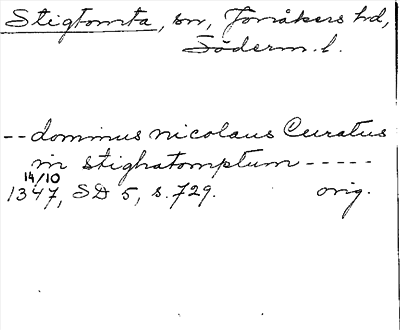 Stigtomta, sn, Jonåkers hd,
Söderm. l.
-- dominus nicolaus Curatus
in stighatomptum -----
14/10
1347, SD 5, s. 729. orig.